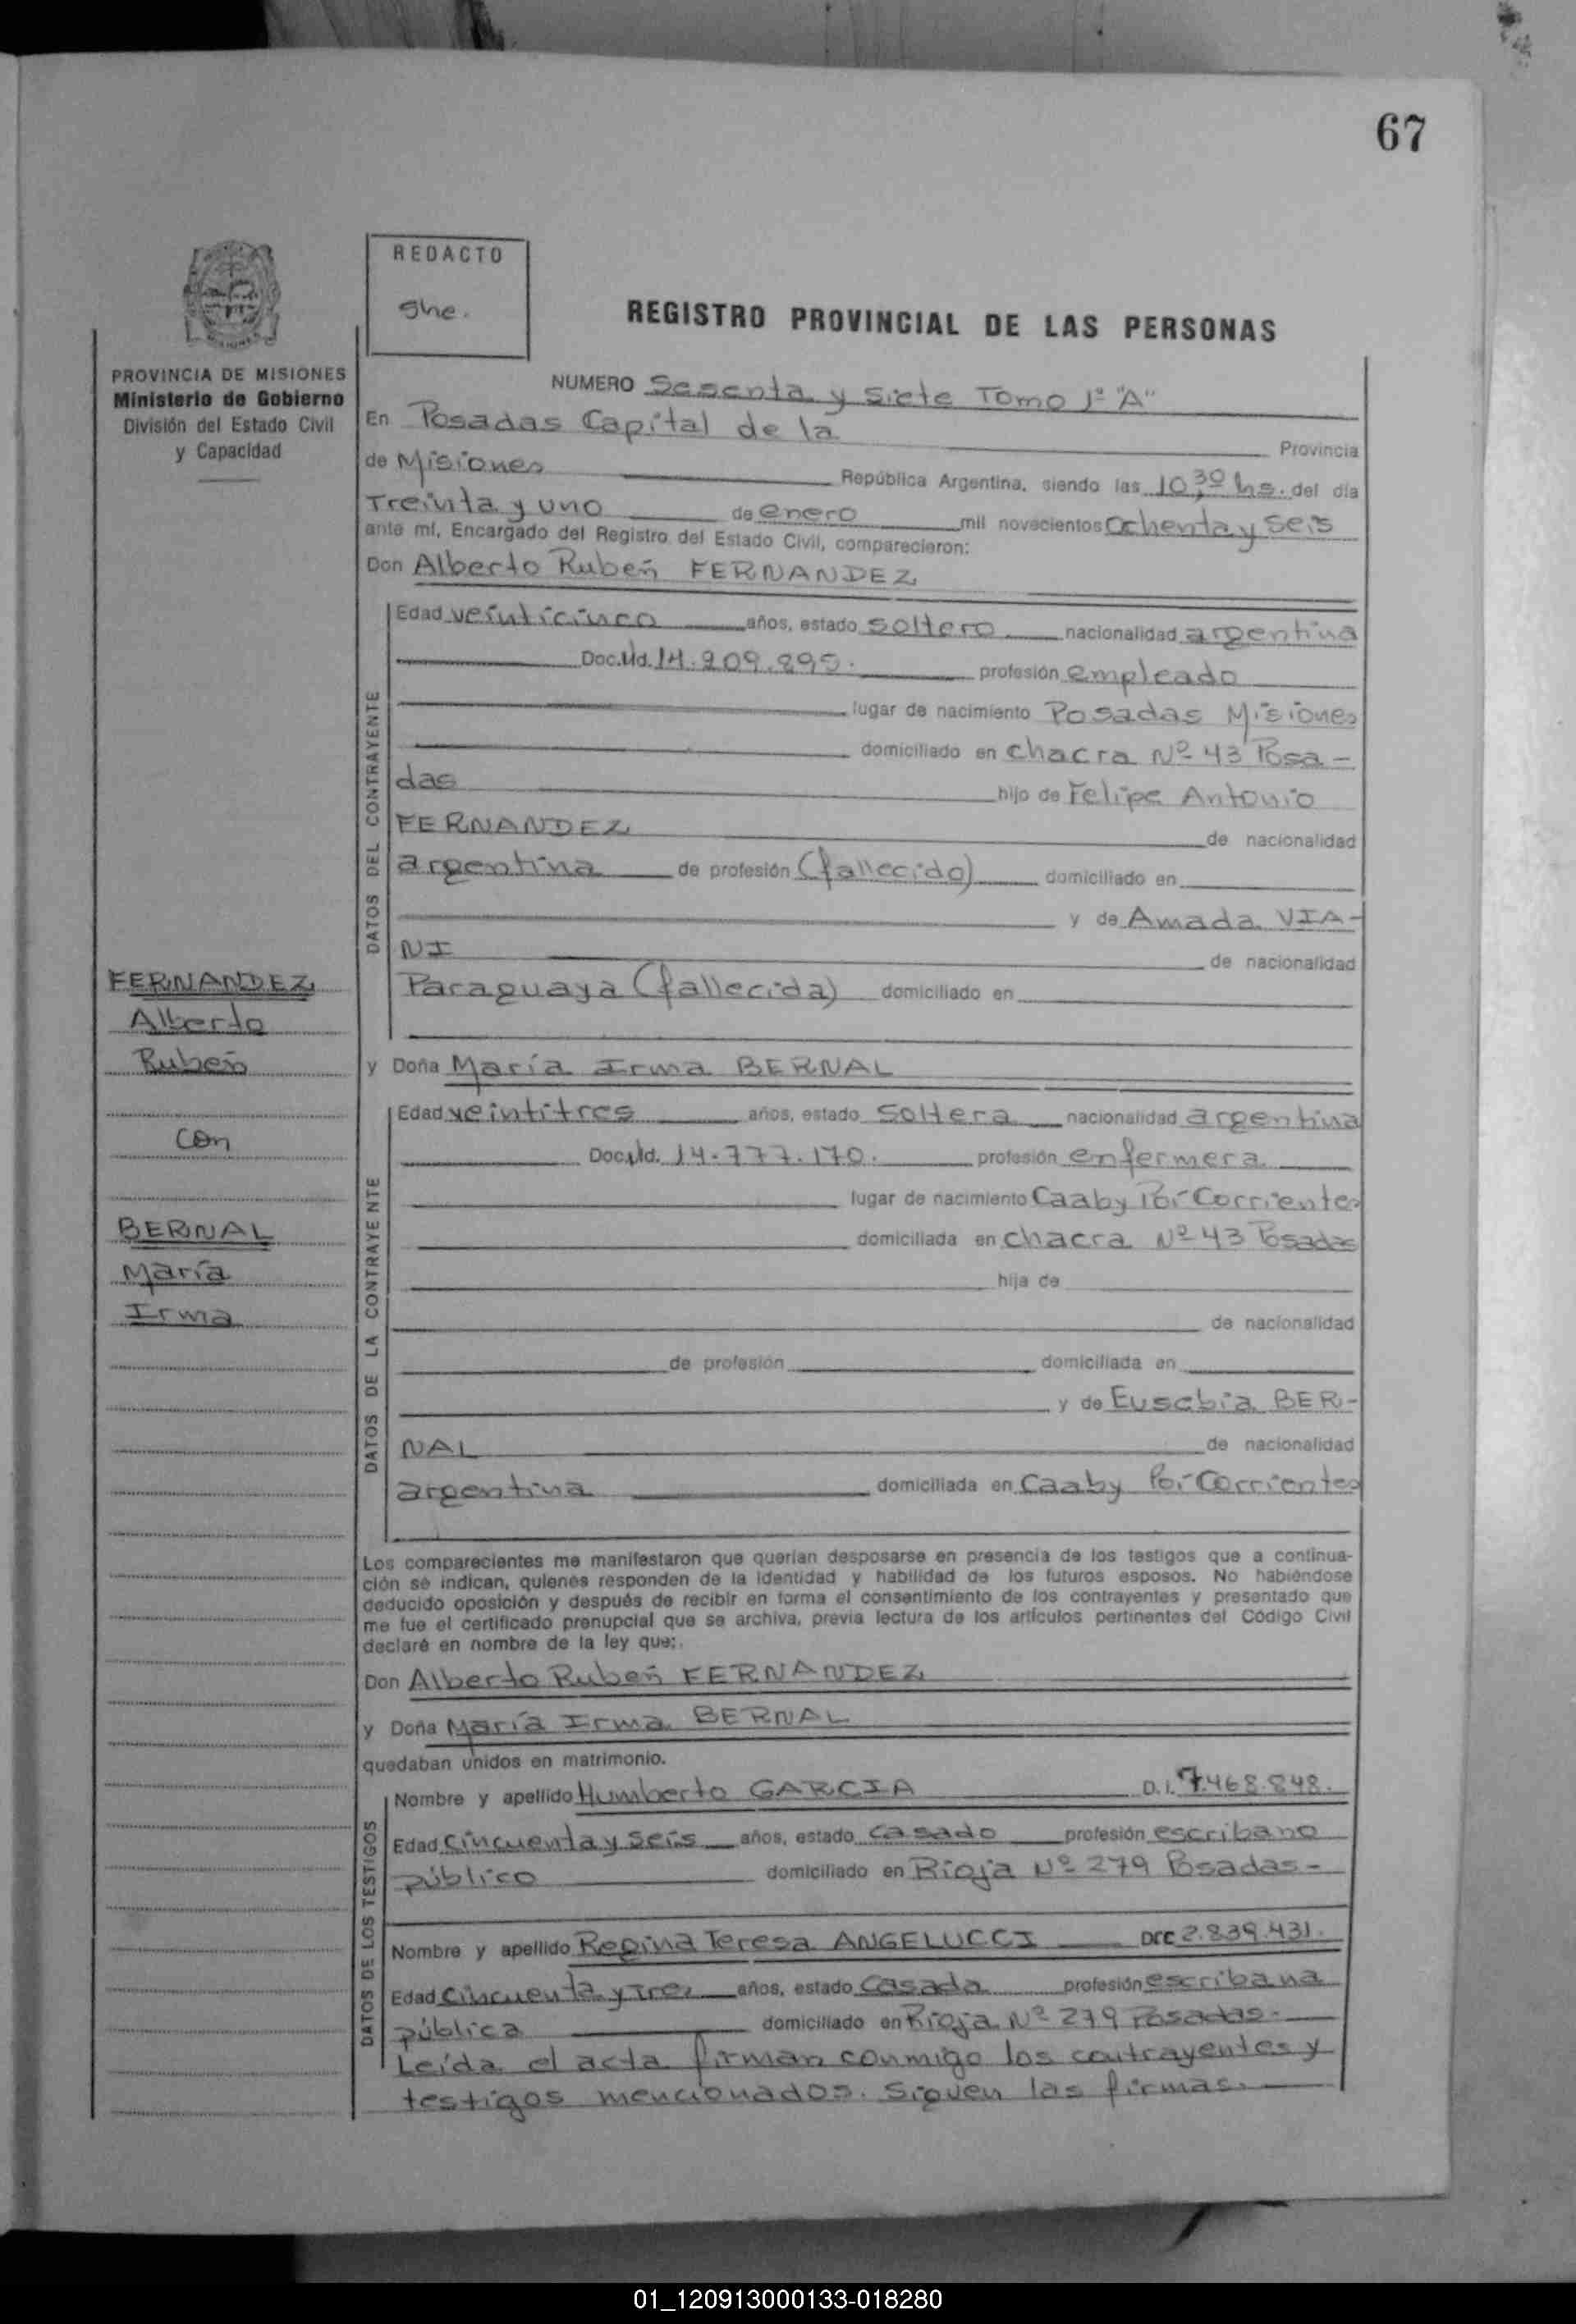 67
REDACTO
She.
REGISTRO PROVINCIAL DE LAS PERSONAS
PROVINCIA DE MISIONES
Ministerio de Gobierno
División del Estado Civil
y Capacidad
NUMERO Sesenta y Siete Tomo 1º "A"
En Posadas Capital de la Provincia
de Misiones República Argentina, siendo las 10,30 hs. del día
Treinta y uno de enero mil novecientos Ochenta y Seis
ante mí, Encargado del Registro del Estado Civil, comparecieron:
Don Alberto Rubén FERNANDEZ
DATOS DEL CONTRAYENTE
Edad veinticinco años, estado soltero nacionalidad argentina
Doc. Id. 14.209.895. profesión empleado
lugar de nacimiento Posadas Misiones
domiciliado en chacra Nº 43 Posa-
das hijo de Felipe Antonio
FERNANDEZ de nacionalidad
argentina de profesión (fallecido) domiciliado en
y de Amada VIA-
NI de nacionalidad
Paraguaya (fallecida) domiciliado en
FERNANDEZ
Alberto
Rubén
con
BERNAL
María
Irma
y Doña María Irma BERNAL
DATOS DE LA CONTRAYENTE
Edad veintitres años, estado soltera nacionalidad argentina
Doc. Id. 14.777.170. profesión enfermera
lugar de nacimiento Caaby Poí-Corrientes
domiciliada en chacra Nº 43 Posadas
hija de
de nacionalidad
de profesión domiciliada en
y de Eusebia BER-
NAL de nacionalidad
argentina domiciliada en Caaby Poí-Corrientes
Los comparecientes me manifestaron que querían desposarse en presencia de los testigos que a continua-
ción se indican, quienes responden de la identidad y habilidad de los futuros esposos. No habiéndose
deducido oposición y después de recibir en forma el consentimiento de los contrayentes y presentado que
me fue el certificado prenupcial que se archiva, previa lectura de los artículos pertinentes del Código Civil
declaré en nombre de la ley que:.
Don Alberto Rubén FERNANDEZ
y Doña María Irma BERNAL
quedaban unidos en matrimonio.
DATOS DE LOS TESTIGOS
Nombre y apellido Humberto GARCIA D.I. 7.468.848.
Edad cincuenta y seis años, estado casado profesión escribano
público domiciliado en Rioja Nº 279 Posadas-
Nombre y apellido Regina Teresa ANGELUCCI 2.839.431.
Edad cincuenta y tres años, estado casada profesión escribana
pública domiciliado en Rioja Nº 279 Posadas-
Leída el acta firman conmigo los contrayentes y
testigos mencionados. Siguen las firmas.
01_120913000133-018280